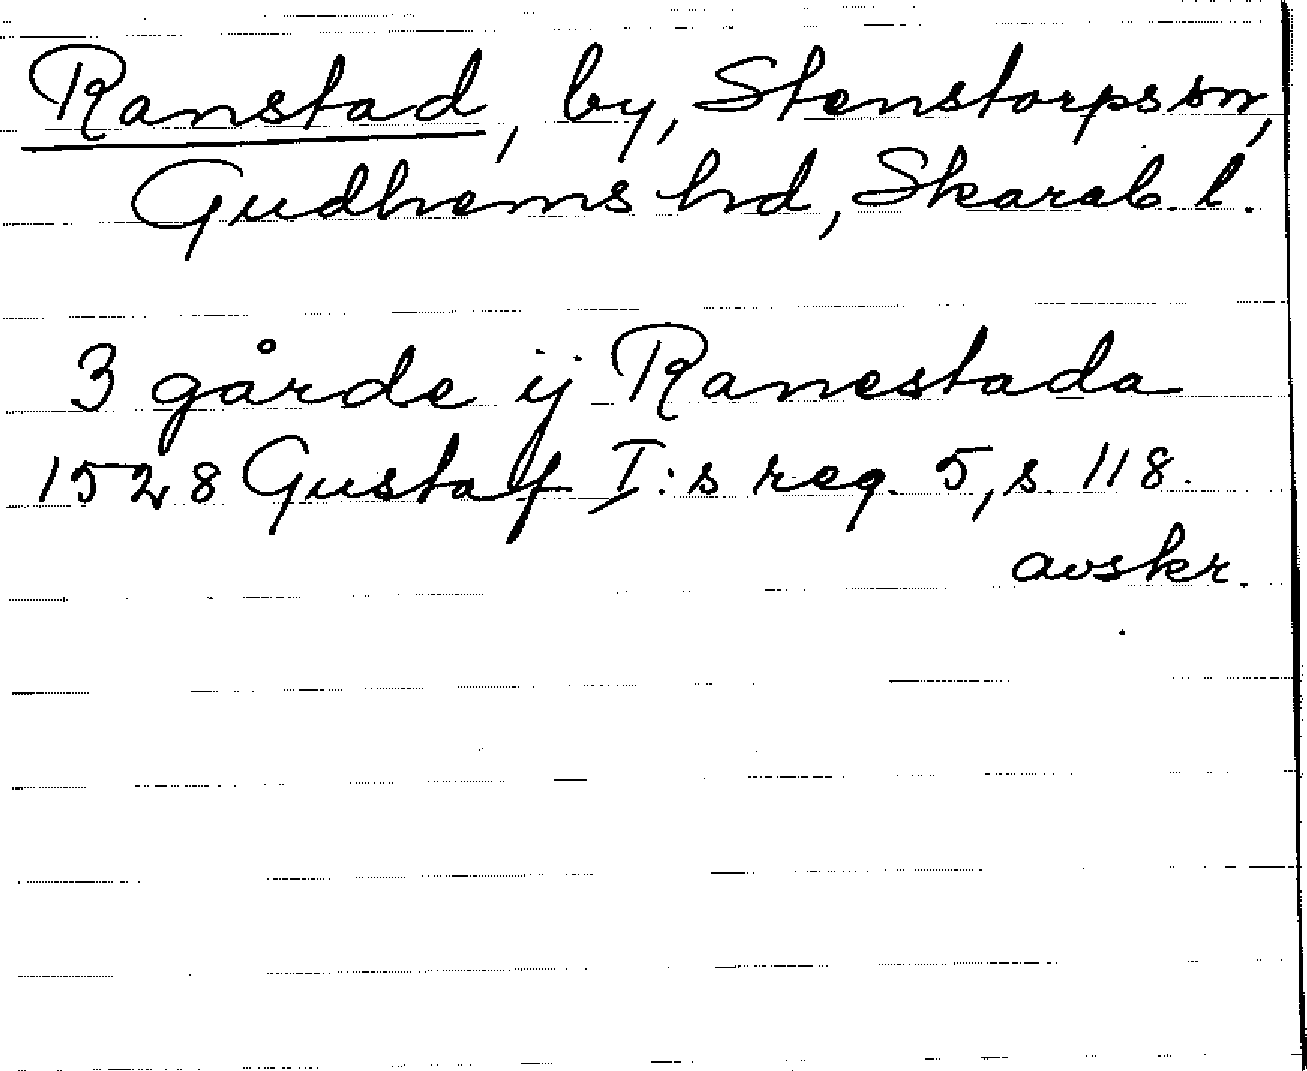 Ranstad, by, Stenstorps sn,
Gudhems hd, Skarab. l.
3 gårde ij Ranestada
1528 Gustaf I:s reg. 5, s. 118.
avskr.